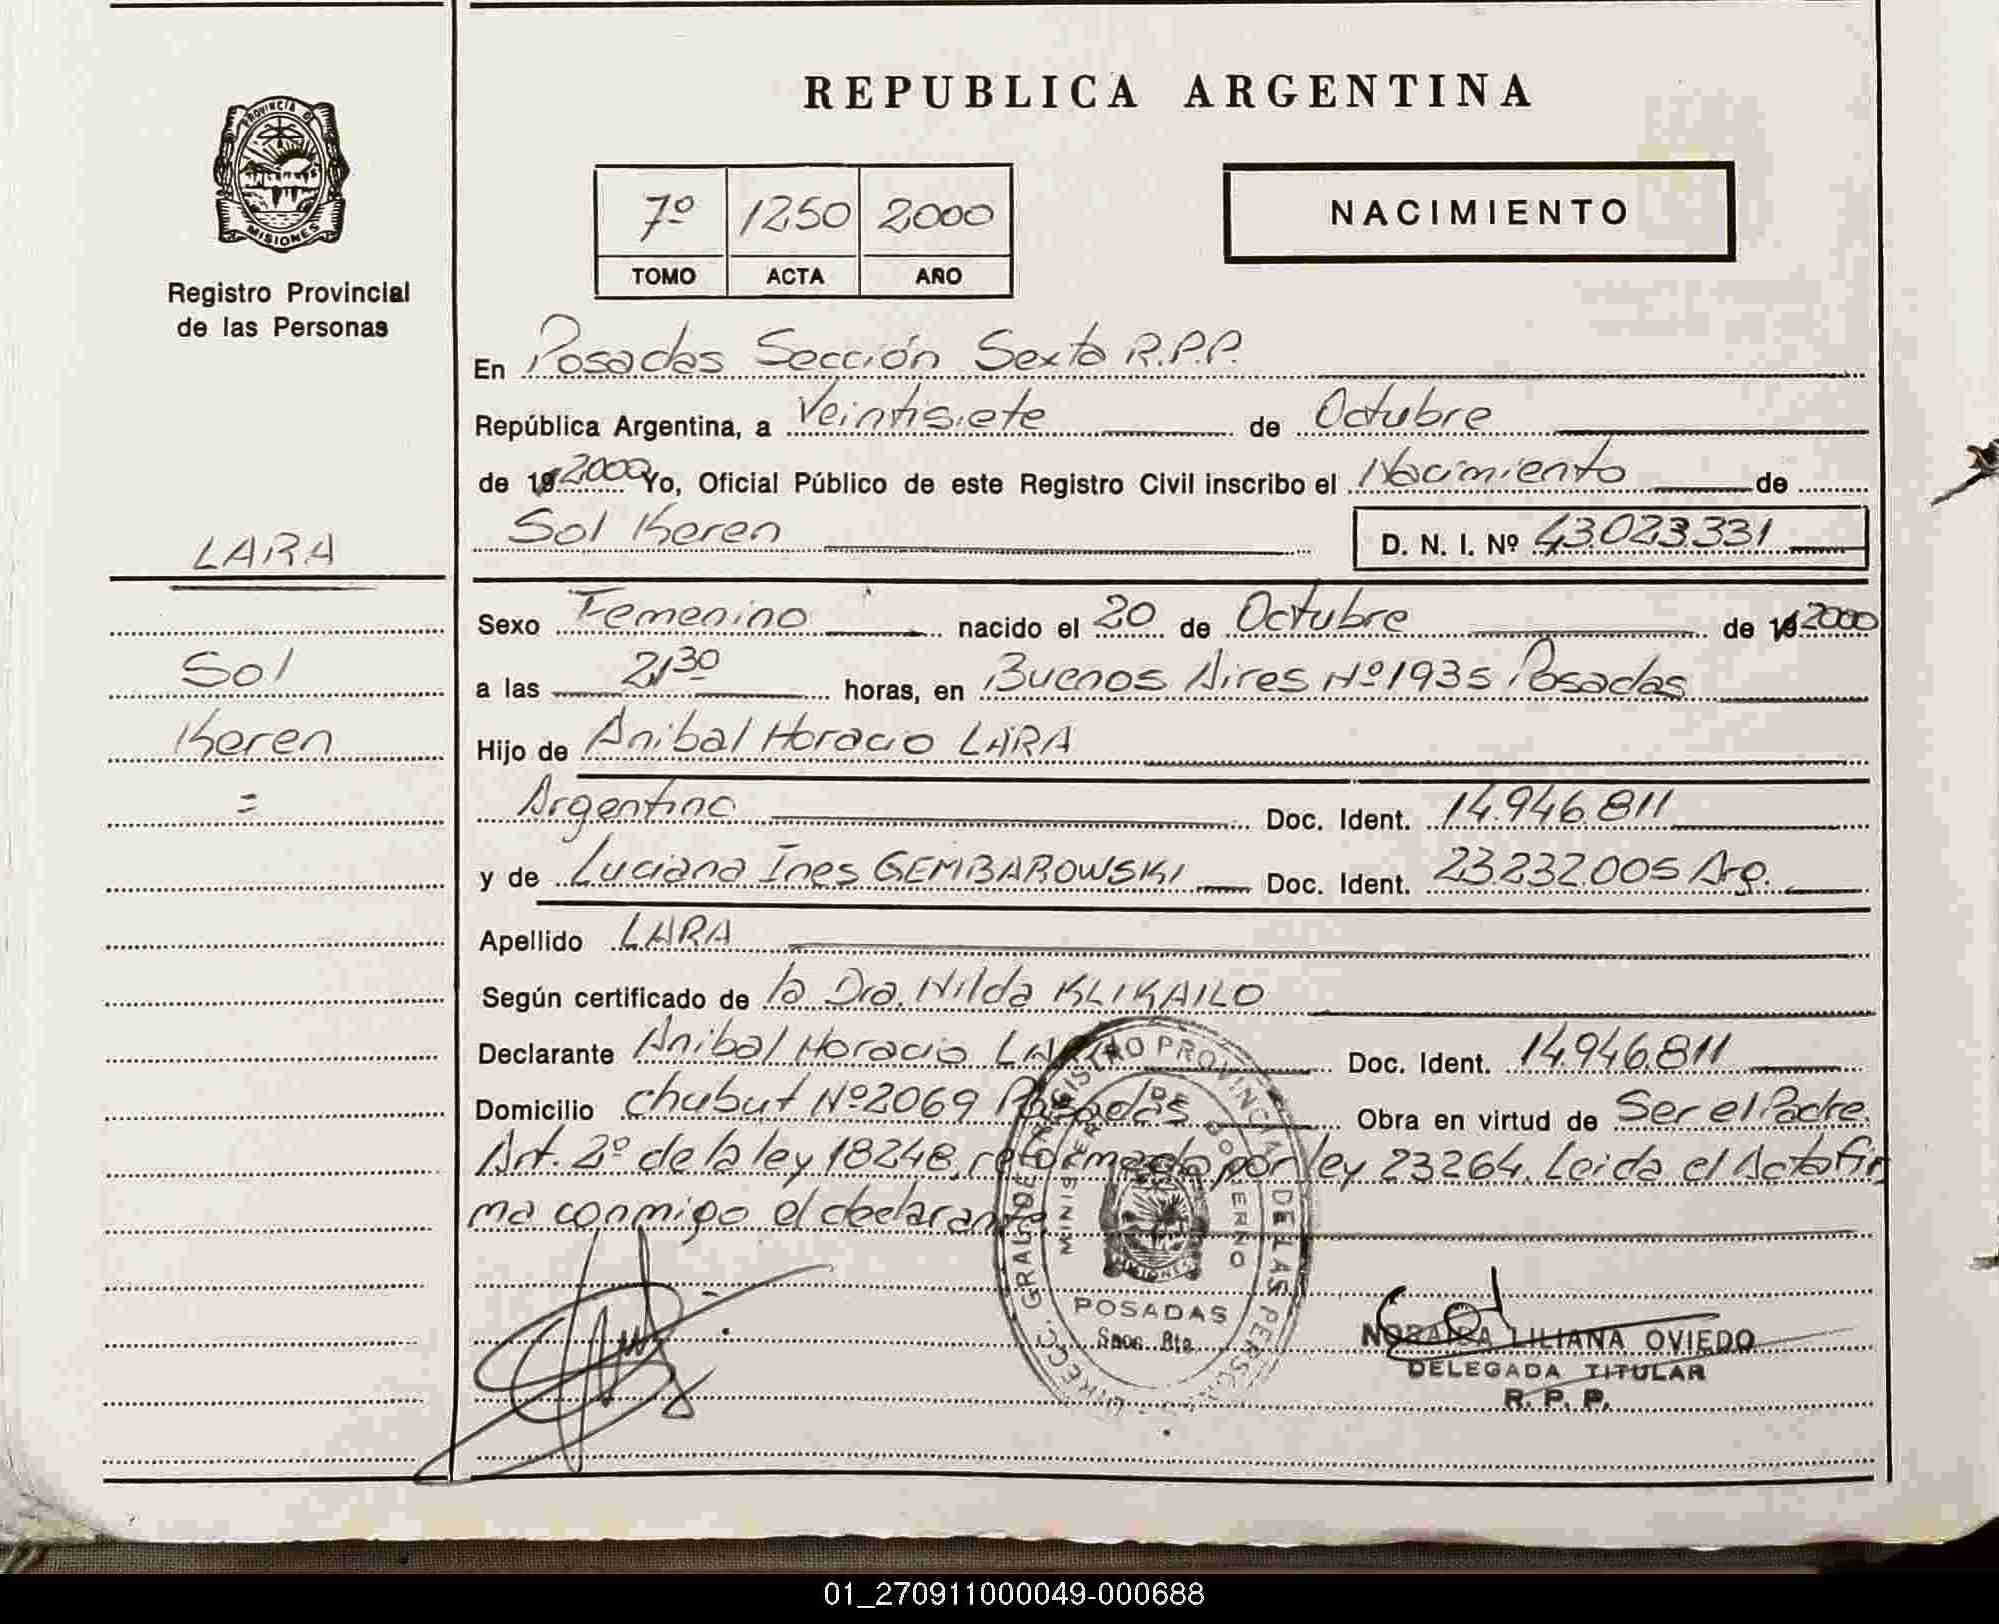 REPUBLICA ARGENTINA
PROVINCIA DE
MISIONES
Registro Provincial
de las Personas
7º 1250 2000
TOMO ACTA AÑO
NACIMIENTO
En Posadas Sección Sexta R.P.P.
República Argentina, a Veintisiete de Octubre
de 19 2000 Yo, Oficial Público de este Registro Civil inscribo el Nacimiento de
Sol Keren D. N. I. Nº 43.023.331
LARA
Sol
Keren
=
Sexo Femenino nacido el 20 de Octubre de 19 2000
a las 21,30 horas, en Buenos Aires Nº 1935 Posadas
Hijo de Anibal Horacio LARA
Argentino Doc. Ident. 14.946.811
y de Luciana Ines GEMBAROWSKI Doc. Ident. 23.232.005 Arg.
Apellido LARA
Según certificado de la Dra. Nilda KLIKAILO
Declarante Anibal Horacio LARA Doc. Ident. 14.946.811
Domicilio chubut Nº 2069 Posadas Obra en virtud de Ser el Padre.
Art. 2º de la ley 18248, reformado por ley 23264. Leida el Acta fir
ma conmigo el declarante.
DIRECC. GRAL. DE REGISTRO PROVINCIAL DE LAS PERSONAS
MINISTERIO DE GOBIERNO
MISIONES
POSADAS
Secc. 6ta.
LILIANA OVIEDO
DELEGADA TITULAR
R. P. P.
01_270911000049-000688